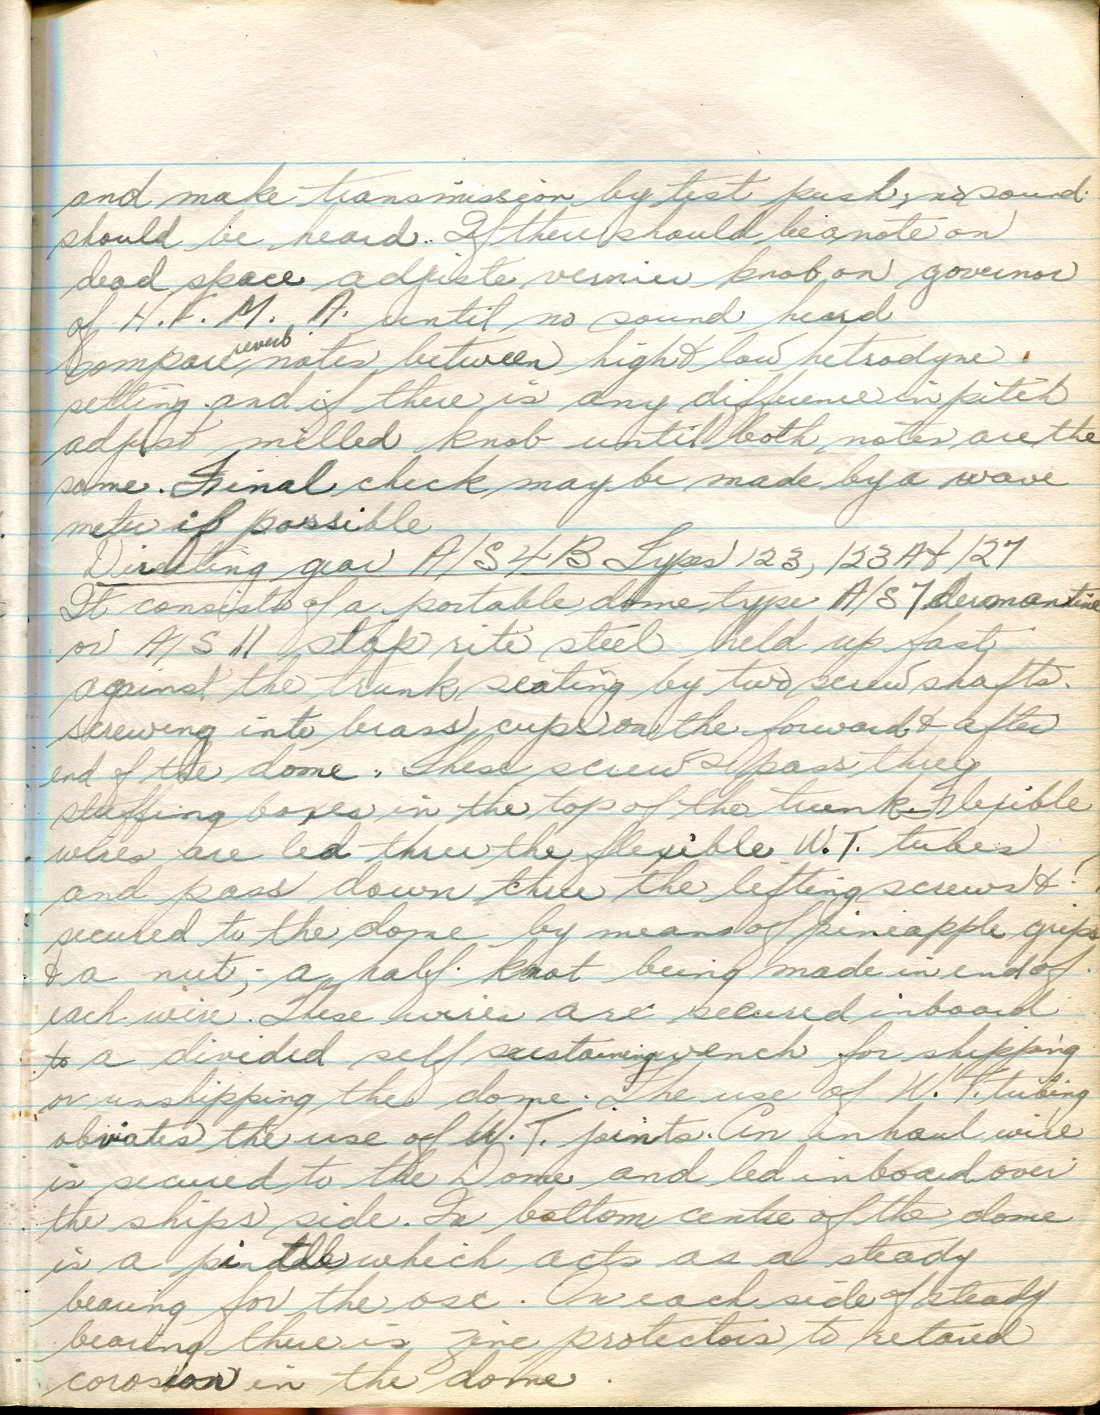 and make transmission by test push, no sound
should be heard. If there should be a note on
dead space adjiste vernier knob on governor
of H.F. M. A. until no sound heard
Compare reverb notes between high & low hetrodyne
setting and if there is any difference in pitch
adjust milled knob until both notes are the
same. Final check may be made by a wave
meter if possible
Directing gear A/S 4 B Types 123, 123A & 127
It consists of a portable dome type A/S 7 dermantine
or A/S 11 staprite steel held up fast
against the trunk seating by two screw shafts.
screwing into brass cups on the forward & after
end of the dome. These screws pass threw
stuffing boxes in the top of the trunk. Flexible
wires are led thru the flexible W.T. tubes
and pass down thru the lifting screws &
secured to the dome by means of pineapple grips
& a nut, - a half knot being made in end of
each wire. These wires are secured inboard
to a divided self sustaining wench for shipping
or unshipping the dome. The use of W.T. tubing
obviates the use of W.T. joints. An inhaul wire
is secured to the Dome and led inboard over
the ships side. In bottom centre of the dome
is a pindle which acts as a steady
bearing for the osc. On each side of steady
bearing there is zinc protectors to retard
corosion in the dome.